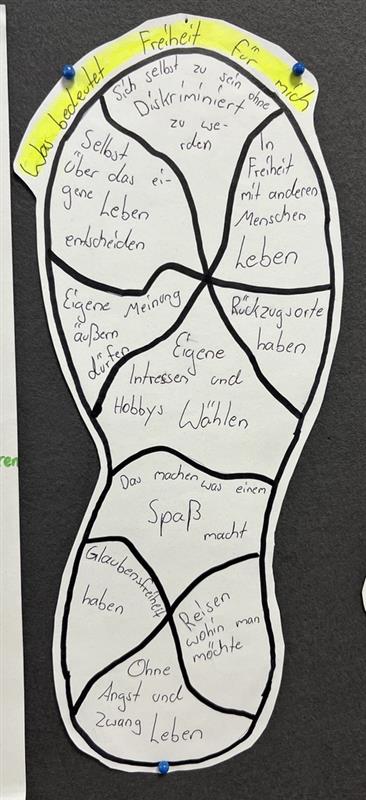 Was bedeutet Freiheit für mich
Sich selbst zu sein ohne
Diskriminiert
zu we-
rden
Selbst
Über das ei-
gene Leben
entscheiden
In
Freiheit
mit anderen
Menschen
Leben
Eigene Meinung
äußern
dürfen
Rückzugsorte
haben
Eigene
Intressen und
Hobbys Wählen
Das machen was einem
Spaß
macht
Glaubensfreiheit
haben
Reisen
wohin man
möchte
Ohne
Angst und
Zwang Leben
ren